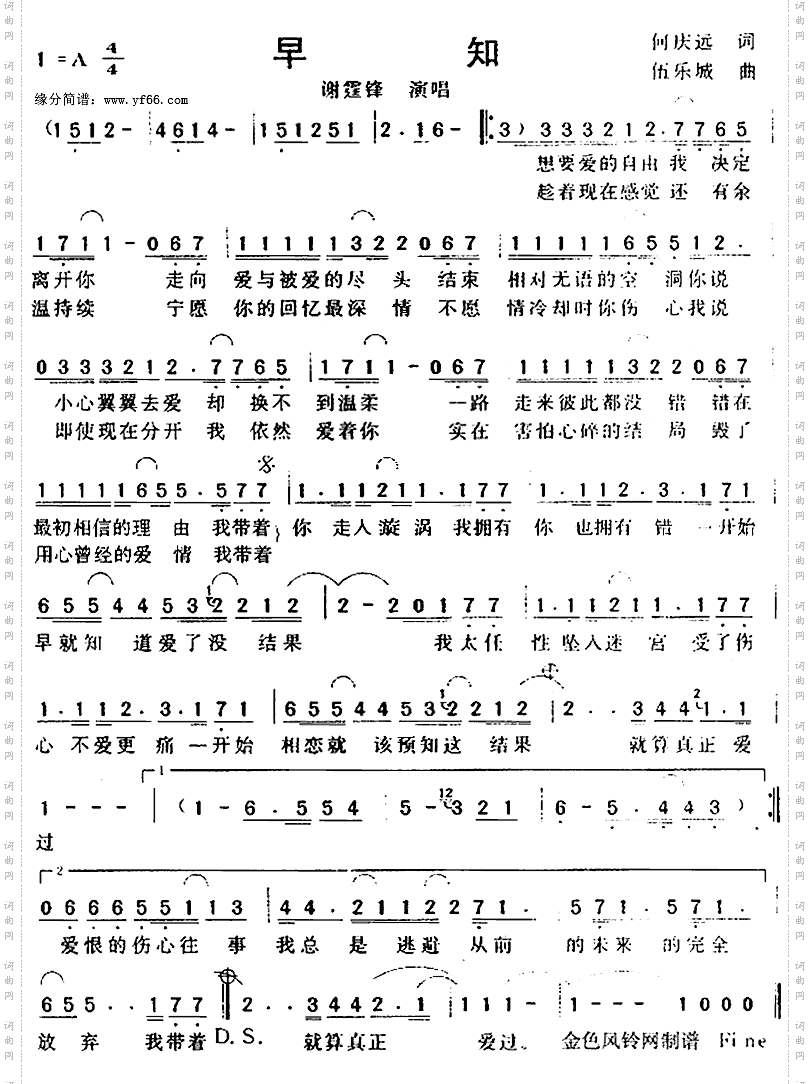 早知
何庆远 词
1=A 4/4
伍乐城 曲
谢霆锋 演唱
缘分简谱：www.yf66.com
(1512- 4614- 151251 2.16- 3) 333212.7765
想要爱的自由我 决定
趁着现在感觉还 有余
1711-067 111113220 67 11111655 12.
离开你 走向 爱与被爱的尽 头 结束 相对无语的空 洞你说
温持续 宁愿 你的回忆最深 情 不愿 情冷却时你伤 心我说
0333212.7765 1711-067 11111322067
小心翼翼去爱 却 换不 到温柔 一路 走来彼此都没 错 错在
即使现在分开 我 依然 爱着你 实在 害怕心碎的结 局 毁了
11111655.577 1.11211.177 1.112.3.171
最初相信的理 由 我带着 你 走入漩涡 我拥有 你 也拥有 错 一开始
用心曾经的爱 情 我带着
6554453 2212 2-20177 1.11211.177
早就知 道爱了没 结果 我太任 性坠入迷 宫 受了伤
1.112.3.171 6554453 2212 2..344 1.1
心 不爱更 痛 一开始 相恋就 该预知这 结果 就算真正 爱
1
1--- (1-6.554 5-321 6-5.443)
过
2
06665113 44.2112271 .571.571
爱恨的伤心往 事 我总 是 逃避 从前 的未来 的完全
655..177 2..3442.1 111-1---1000
放弃 我带着 D.S. 就算真正 爱过。 金色风铃网制谱 Fine
词曲网